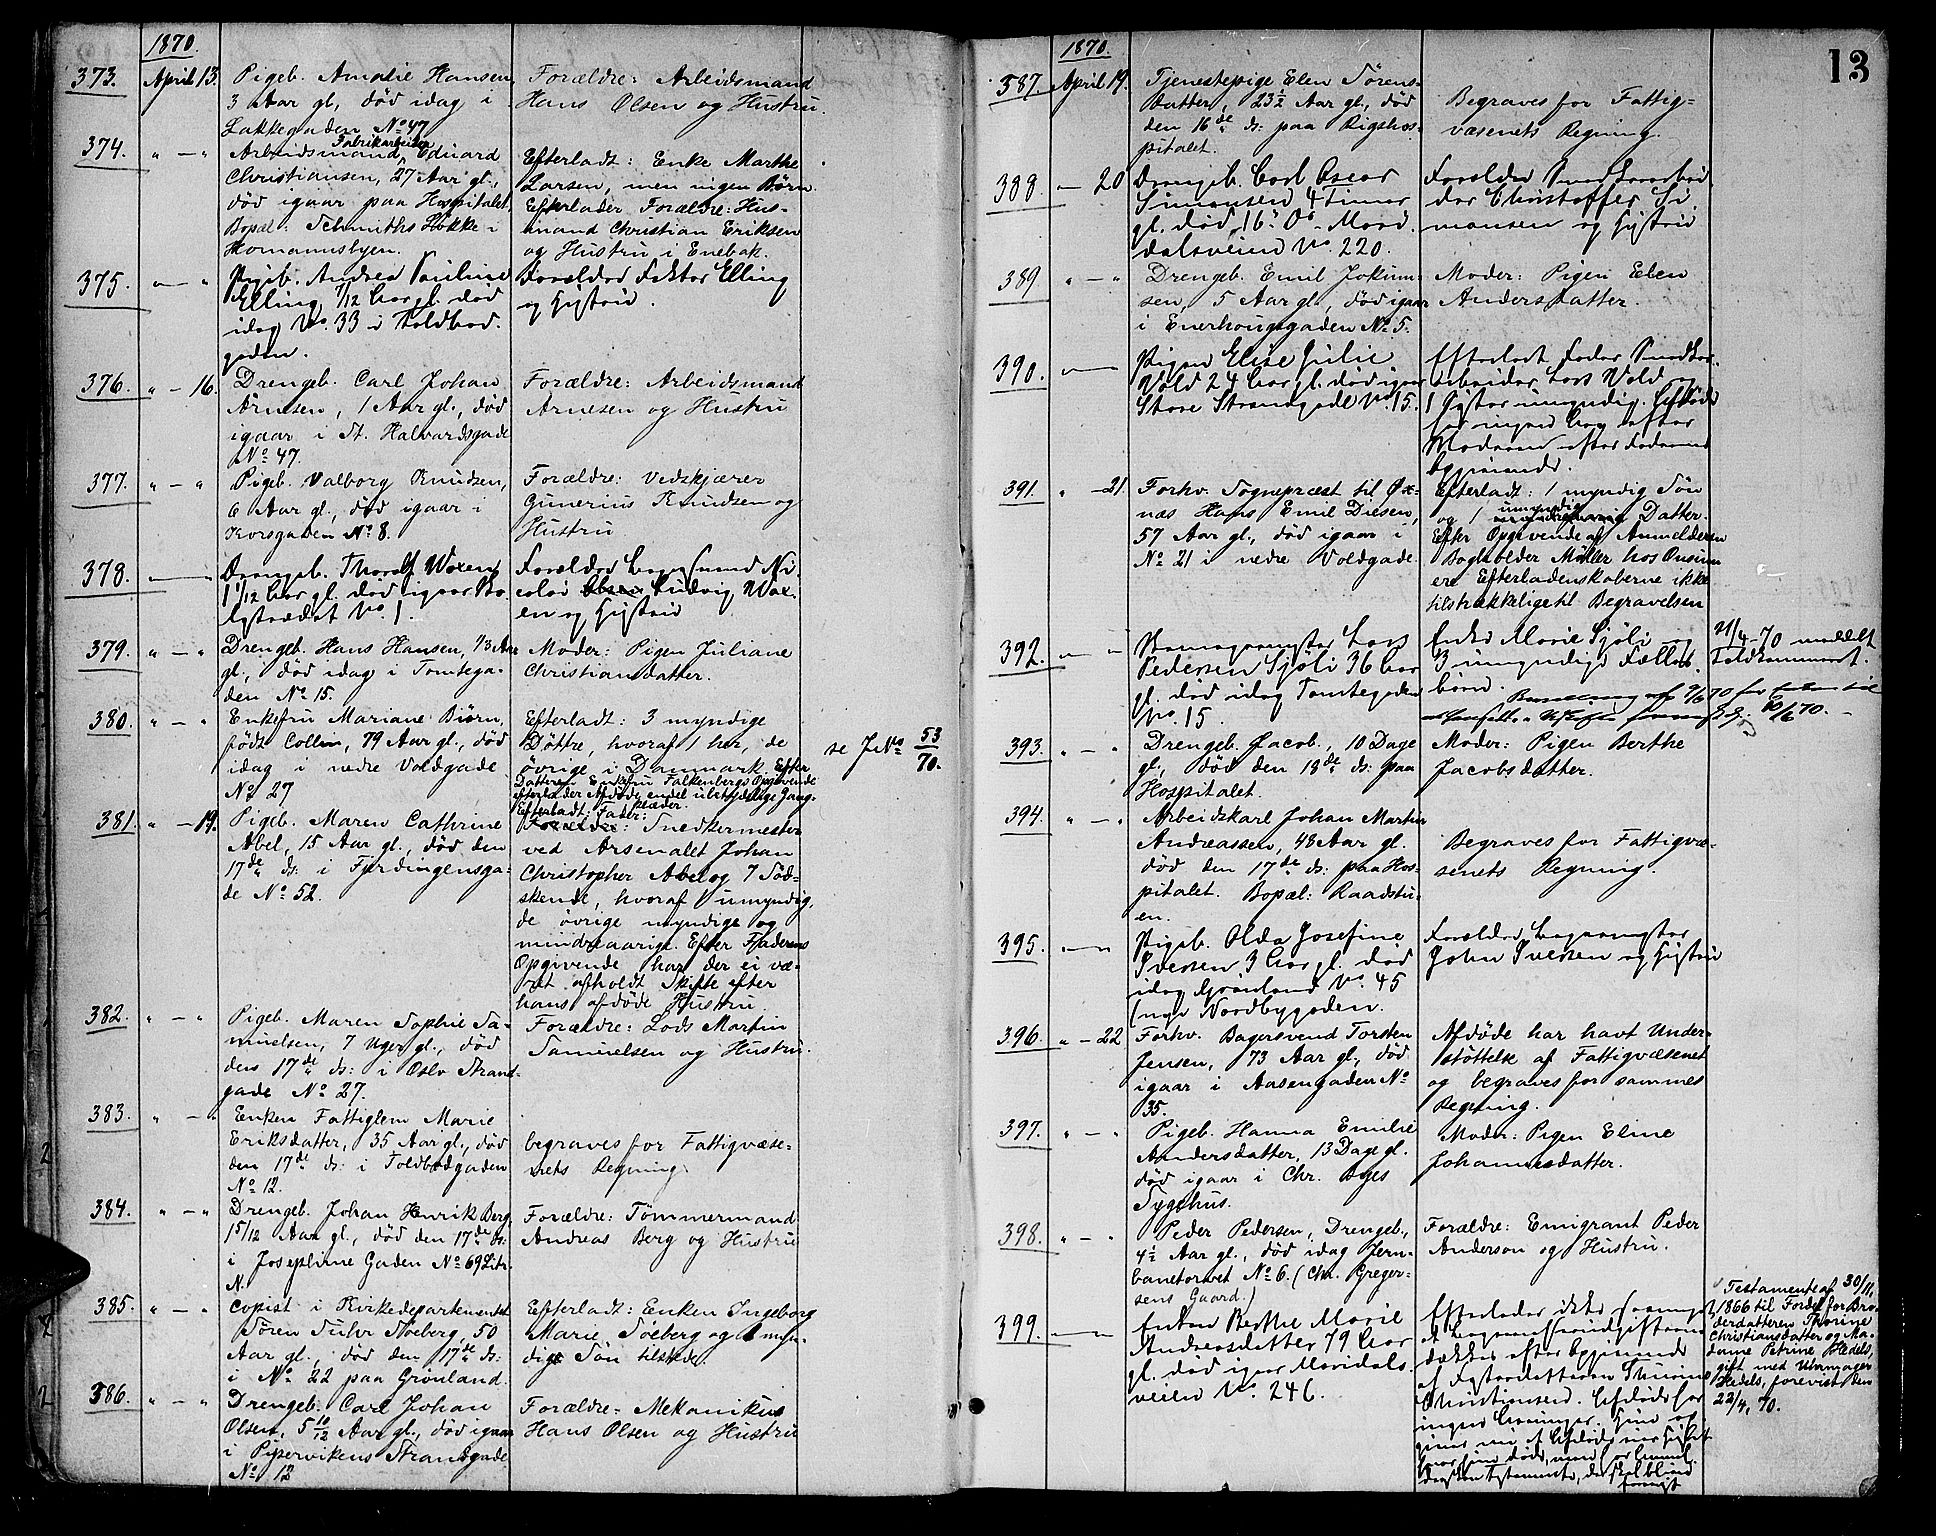 1870.
373. April 13. Pigeb. Amalie Hansen, Forældre: Arbeidsmand
3 Aar gl., død idag i Hans Olsen og Hustru.
Lakkegaden No 47
374. " — " Arbeidsmand, Fabrikarbeider Eduard Efterladt: Enke Marthe
Christiansen, 27 Aar gl., Larsen, men ingen Børn.
død igaar paa Hospitalet. Efterlader Forældre: Hus-
Bopæl: Schmiths Løkke i mand Christian Eriksen
Homannsbyen. og Hustru i Enebak.
375. " — " Pigeb. Andrea Pauline Forældre Elling
Elling, /12 Aar gl. død og Hustru.
idag No. 33 i Toldbod-
gaden.
376. " — 16. Drengeb. Carl Johan Forældre: Arbeidsmand
Arnesen, 1 Aar gl., død Arnesen og Hustru
igaar i St. Halvardsgade
No 47.
377. " — " Pigeb. Valborg Knudsen, Forældre: Vedskjærer
6 Aar gl., død igaar i Gunerius Knudsen og
Korsgaden No 8. Hustru
378. " — " Drengeb. Thorolf Woxen, Forældre Ni-
1 1/12 Aar gl. død igaar Bo- colai Olsen Ludvig Wox-
gstrædet No. 1. en og Hustru
379. " — " Drengeb. Hans Hansen, 1/3 Aar Moder: Pigen Juliane
gl., død idag i Tomtega- Christiansdatter.
den No 15.
380. " — " Enkefru Mariane Biørn, Efterladt: 3 myndige
født Collin, 79 Aar gl., død Døttre, hvoraf 1 her, de se JNo 53/70.
idag i nedre Voldgade øvrige i Danmark. Efter
No 27 Datteren Enkefru Falkenbergs Opgivende
efterlader Afdøde endel ubetydelige Gang-
klæder.
381. " — 19. Pigeb. Maren Cathrine Efterladt: Fader: Forældre: Snedkermester
Abel, 15 Aar gl., død den ved Arsenalet Johan
17de ds: i Fjerdingensga- Christopher Abel og 7 Sød-
de No 52. skende, hvoraf 1 umyndig,
de øvrige myndige og
mindreaarige. Efter Faderens
Opgivende har der ei væ-
ret afholdt Skifte efter
hans afdøde Hustru
382. " — " Pigeb. Maren Sophie Sa- Forældre: Lods Martin
muelsen, 7 Uger gl., død Samuelsen og Hustru.
den 17de ds: i Oslo Strand-
gade No 27.
383. " — " Enken Fattiglem Marie
Eriksdatter, 35 Aar gl., død begraves for Fattigvæse-
den 17de ds: i Toldbodgaden nets Regning.
No 12.
384. " — " Drengeb. Johan Henrik Berg, Forældre: Tømmermand
15/12 Aar gl., død den 17de ds: Andreas Berg og Hustru
i Josephine Gaden No 69 Litr.
N.
385. " — " Copist i Kirkedepartementet Efterladt: Enken Ingeborg
Søren Suhr Søeberg, 50 Marie Søeberg og 1 myn-
Aar gl., død den 17de ds: dig Søn tilstede.
i No 22 paa Grønland.
386. " — " Drengeb. Carl Johan Forældre: Mekanikus
Olsen, 5 10/12 Aar gl., død igaar Hans Olsen og Hustru
i Pipervikens Strandgade
No 12
13
1870.
387. April 19. Tjenestepige Elen Sørens-
datter, 23½ Aar gl., død Begraves for Fattig-
den 16de ds: paa Rigshos- væsenets Regning.
pitalet.
388. — 20 Drengeb. Carl Oscar Forældre Snedkerarbei-
Simonsen 4 Timer der Christoffer Si-
gl. død 16. Mari- monsen og Hustru
dalsveien No 220.
389 " — " Drengeb. Emil Jokum- Moder: Pigen Elen
sen, 5 Aar gl., død igaar Andersdatter.
i Enerhougsgaden No 5.
390. " — " Pigen Elise Julie Efterladt Fader Snedker-
Vold 24 Aar gl. død igaar arbeider Lars Vold og
Store Strandgade No. 15. 1 Søster umyndig. Afdøde
har ingen Arv efter
Moderen efter Faderens
Opgivende.
391. " — 21. Forhv. Sognepræst til Øx- Efterladt: 1 myndig Søn
næs Hans Emil Diesen, og 1 umyndig Datter.
57 Aar gl., død igaar i Efter Opgivende af Anmelderen
No 21 i nedre Voldgade. Bogholder Møller hos Onsum
ere Efterladenskaberne ikke
tilstrækkelige til Begravelsen
392. " — " Lars Enke Marie Sjøli og 21/4 70 meldt
Pedersen Sjøli 36 Aar 3 umyndige Fælles- Toldkammeret.
gl. død idag Tomtegaden børn.
No. 15.
393. " — " Drengeb. Jacob, 10 Dage Moder: Pigen Berthe
gl., død den 18de ds: paa Jacobsdatter.
Hospitalet.
394. " — " Arbeidskarl Johan Martin
Andreassen, 48 Aar gl. Begraves for Fattigvæ-
død den 17de ds: paa Hos- senets Regning.
pitalet. Bopæl: Raadstu-
en.
395. " — " Pigeb. Olda Josefine Forældre
Iversen 3 Aar gl. død John Iversen og Hustru
idag Grønland No. 45
(nye Nordbygaden.
396. " — 22 Forhv. Bagersvend Torsten Afdøde har havt Under-
Jensen, 73 Aar gl., død støttelse af Fattigvæsenet
igaar i Aasengaden No og begraves for sammes
35. Regning.
397. " — " Pigeb. Hanna Emilie Moder: Pigen Eline
Andersdatter, 13 Dage gl. Johannesdatter.
død igaar i Chr. Byes
Sygehus.
398. " — " Peder Pedersen, Drengeb., Forældre: Emigrant Peder
4½ Aar gl., død idag Jern- Anderson og Hustru.
banetorvet No 6. (Chr. Greger-
sens Gaard.)
399. " — " Enken Berthe Marie Efterlader ikke Testamente af 30/11,
Andreasdatter 79 Aar 1866 til Fordel for Bro-
gl. død igaar Maridals- derdatteren Thorine
veien No. 246. Christiansdatter og Ma-
dame Petrine Hedels,
gift med Uhrmager
Hedels, forevist den
22/4, 70.